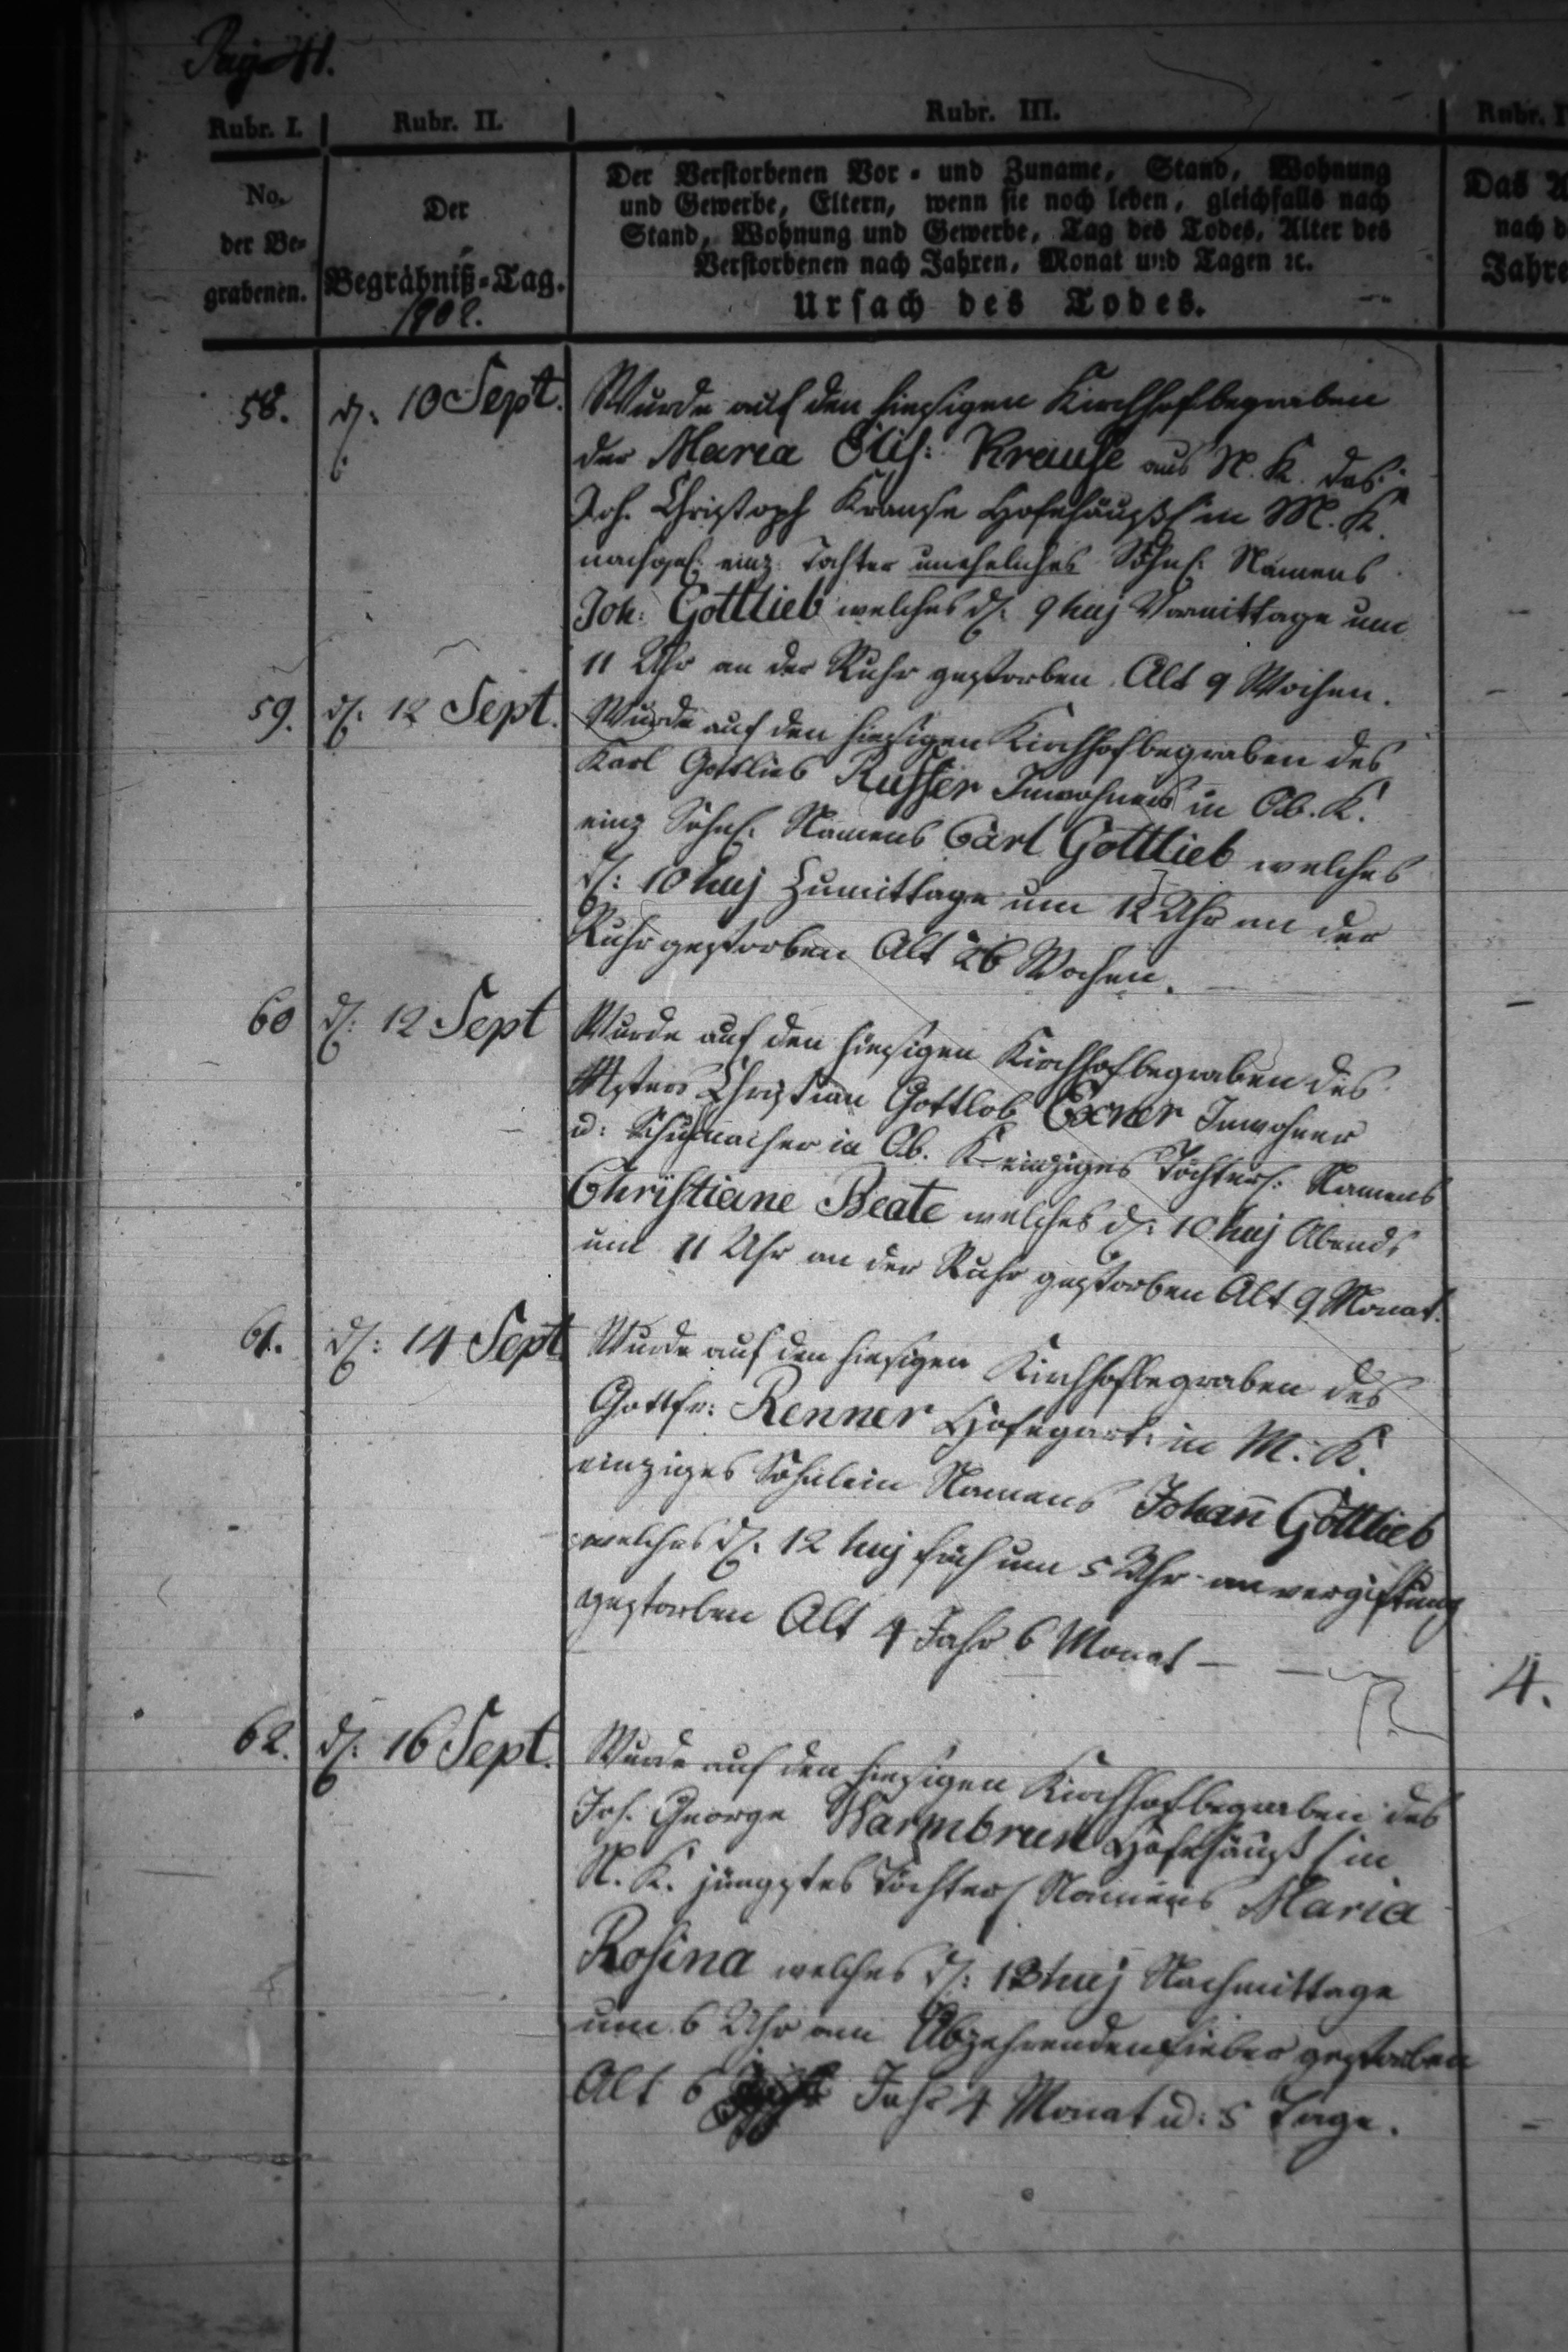 Pag. 41.
Rubr. I.
Rubr. II.
Rubr. III.
No.
der Be=
grabenen.
Der
Begräbniß=Tag.
Der Verstorbenen Vor= und Zuname, Stand, Wohnung
und Gewerbe, Eltern, wenn sie noch leben, gleichfalls nach
Stand, Wohnung und Gewerbe, Tag des Todes, Alter des
Verstorbenen nach Jahren, Monat und Tagen ꝛc.
Ursach des Todes.
Das
nach d
Jahre
58.
d. 10 Sept.
Wurde auf den hiesigen Kirchhof begraben
der Maria Elis: Krause aus N. K. des
Joh. Christoph Krause Hofehäußl in M. K.
nachgel. einz. Tochter uneheliches Söhnl. Namens
Joh: Gottlieb welches d. 9 huj Vormittage um
11 Uhr an der Ruhr gestorben. Alt 9 Wochen.
59.
d. 12 Sept.
Wurde auf den hiesigen Kirchhof begraben des
Karl Gottlieb Russer Inwohners in Ob. K.
einz Söhnl. Namens Carl Gottlieb welches
d: 10 huj Zumittage um 12 Uhr an der
Ruhr gestorben Alt 26 Wochen.
60
d: 12 Sept
Wurde auf den hiesigen Kirchhof begraben des
Msters Christian Gottlob Exner Inwohner
u: Schuhmacher in Ob. K einziges Töchterl. Namens
Christiane Beate welches d: 10 huj Abends
um 11 Uhr an der Ruhr gestorben Alt 9 Monat.
61.
d: 14 Sept
Wurde auf den hiesigen Kirchhof begraben des
Gottfr: Renner Hofegärt: in M. K.
einziges Söhnlein Namens Johan̄ Gottlieb
welches d. 12 huj früh um 5 Uhr an vergiftung
gestorben Alt 4 Jahr 6 Monat —
4.
62.
d: 16 Sept.
Wurde auf den hiesigen Kirchhof begraben des
Joh. George Warmbrun Hofehäußl in
N. K. jüngstes Töchterl Namens Maria
Rosina welches d: 13 huj Nachmittage
um 6 Uhr am Abzehrenden fieber gestorben
Alt 6 Jahr 4 Monat u: 5 Tage.